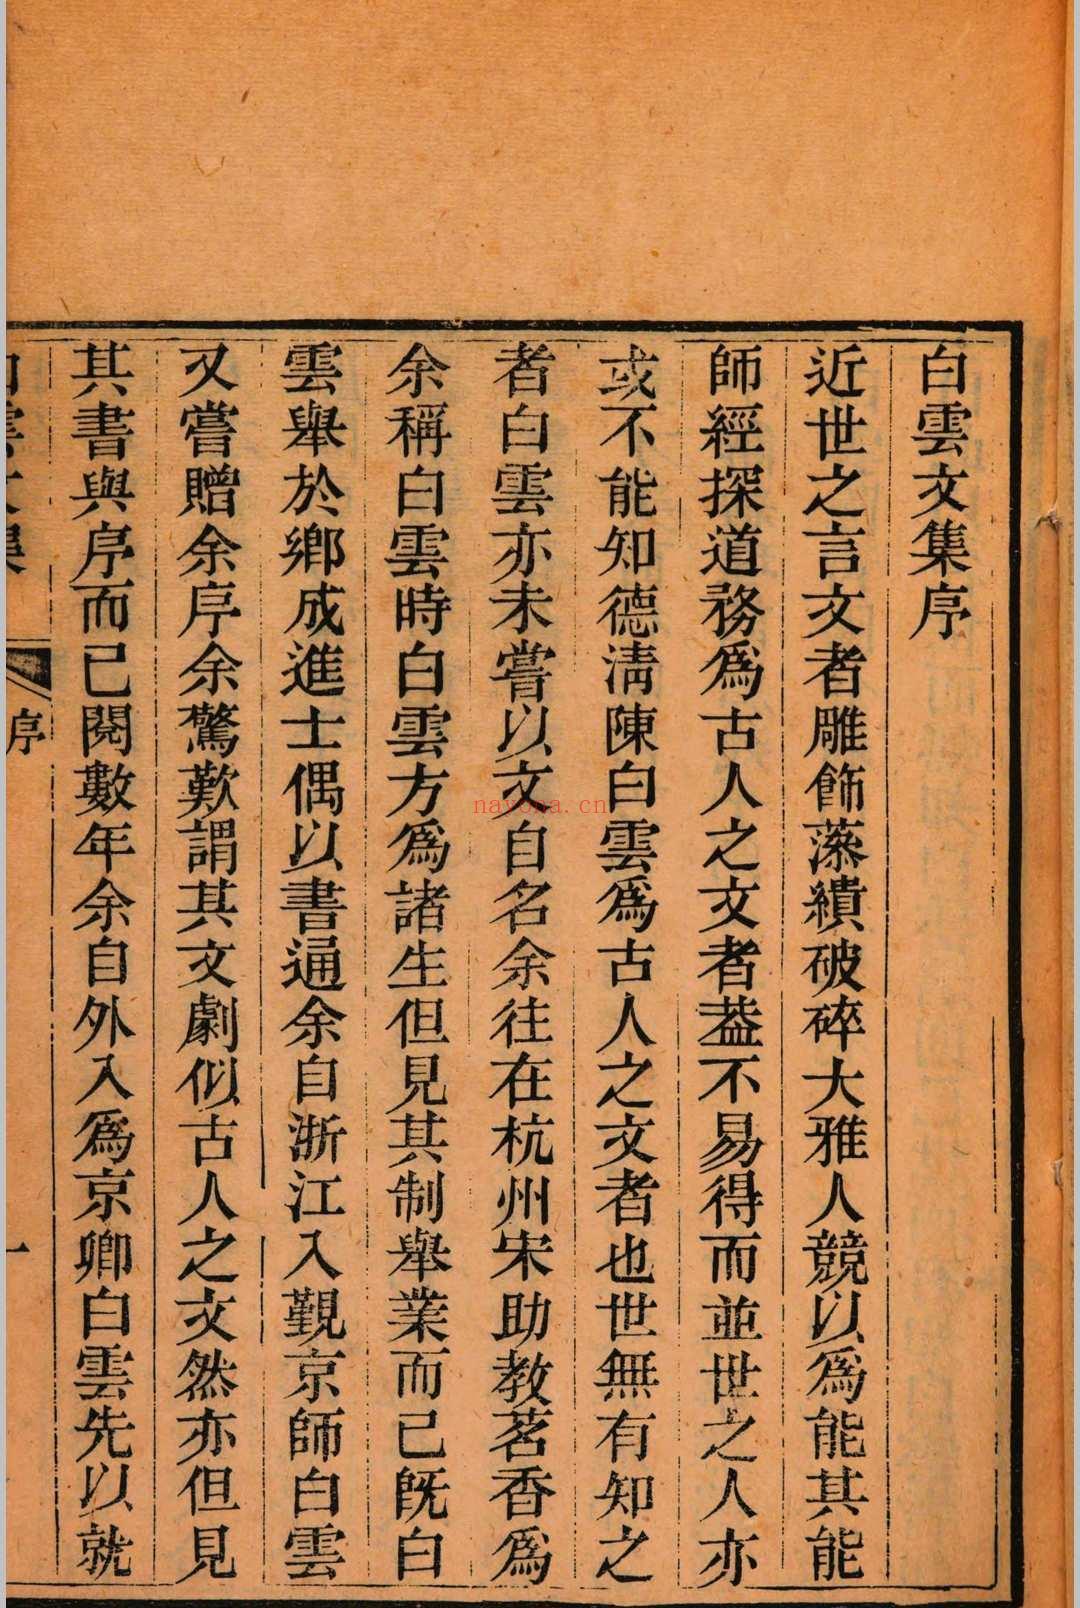 白雲文集序
近世之言文者雕飾藻繢破碎大雅人競以爲能其能
師經探道務爲古人之文者葢不易得而並世之人亦
或不能知德淸陳白雲爲古人之文者也世無有知之
者白雲亦未嘗以文自名余往在杭州宋助教茗香爲
余稱白雲時白雲方爲諸生但見其制舉業而已旣白
雲舉於鄉成進士偶以書通余自浙江入覲京師白雲
又嘗贈余序余驚歎謂其文劇似古人之文然亦但見
其書與序而已閱數年余自外入爲京卿白雲先以就
白雲文集
序
一
nayona.cn